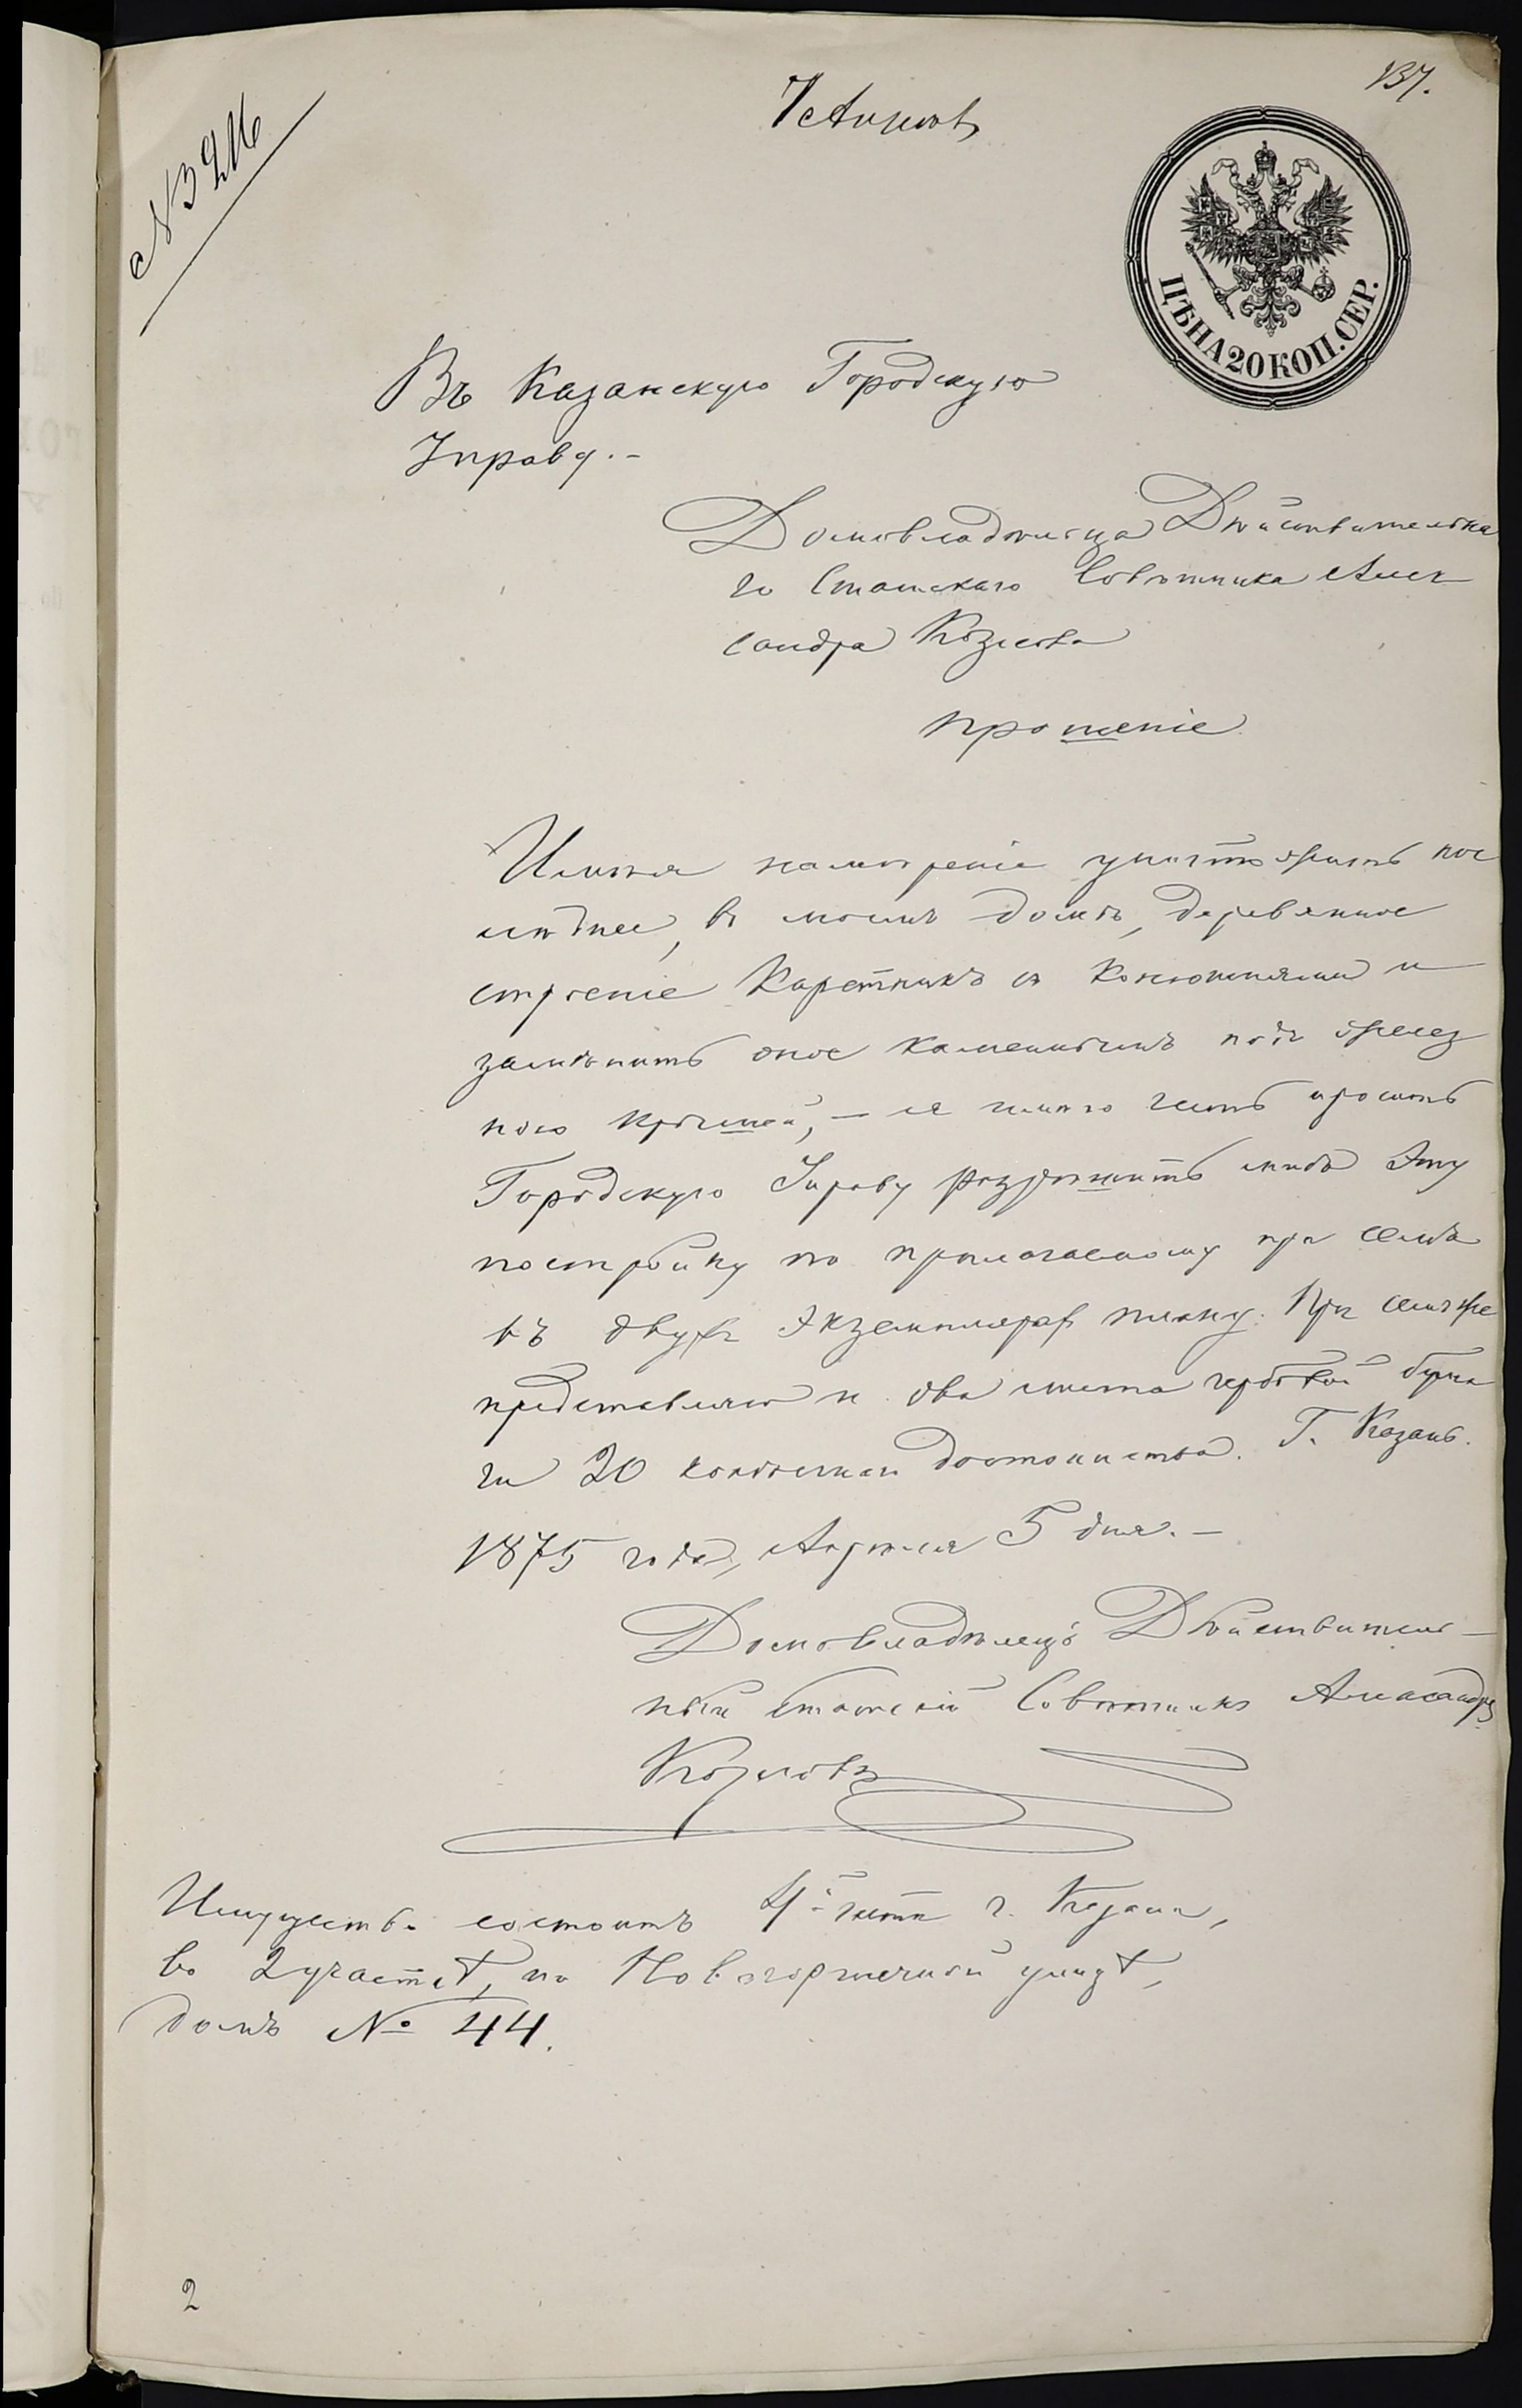 137.
7 Апрѣля
ЦѢНА 20 КОП. СЕР.
Въ Казанскую Городскую
Управу.-
Домовладѣльца Дѣйствительна
го Статскаго Совѣтника Алек
сандра Козлова
прошеніе
Имѣя намѣреніе уничтожить пос
лѣднее, въ моемъ домѣ, деревянное
строеніе Каретникъ съ Конюшнями и
замѣнить оное каменнымъ подъ желез
ною крышей, — я имѣю честь просить
Городскую Управу разрѣшить мнѣ эту
постройку по прилагаемому при семъ
въ двухъ экземплярах плану. При семъ же
представляю и два листа гербовой бума
ги 20 копѣечнаго достоинства. Г. Казань.
1875 года, Апрѣля 5 дня.-
Домовладѣлецъ Дѣйствитель-
ный Статскій Совѣтникъ Александръ
Козловъ
Имущество состоитъ 4й части г. Казани,
во 2 участкѣ, на Новогоршечной улицѣ,
домъ № 44.
2